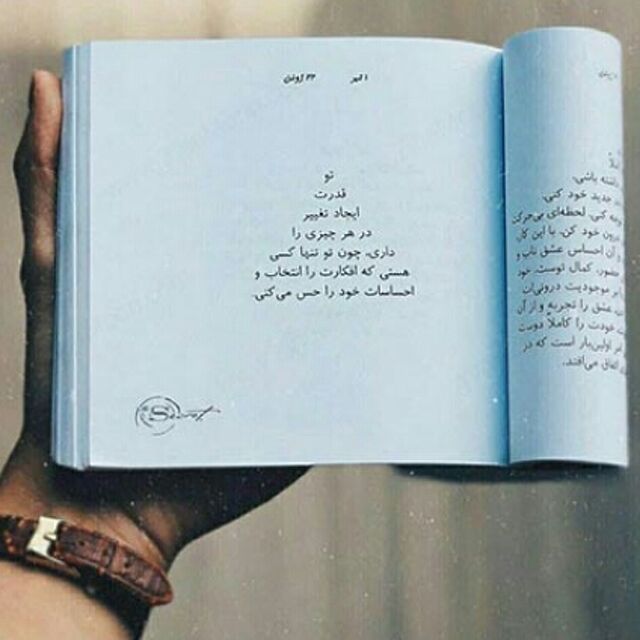 ۱ تیر ۲۲ ژوئن
تو
قدرت
ایجاد تغییر
در هر چیزی را
داری، چون تو تنها کسی
هستی که افکارت را انتخاب و
احساسات خود را حس می‌کنی.
داشته باشی.
جدید خود کنی.
کنی، لحظه‌ای بی‌حرکت
درون خود کن. با این کار
آن احساس عشق ناب و
حضور، کمال توست. خود
موجودیت درونی‌ات
عشق را تجربه و از آن
خودت را کاملاً دوست
اولین‌بار است که در
اتفاق می‌افتد.